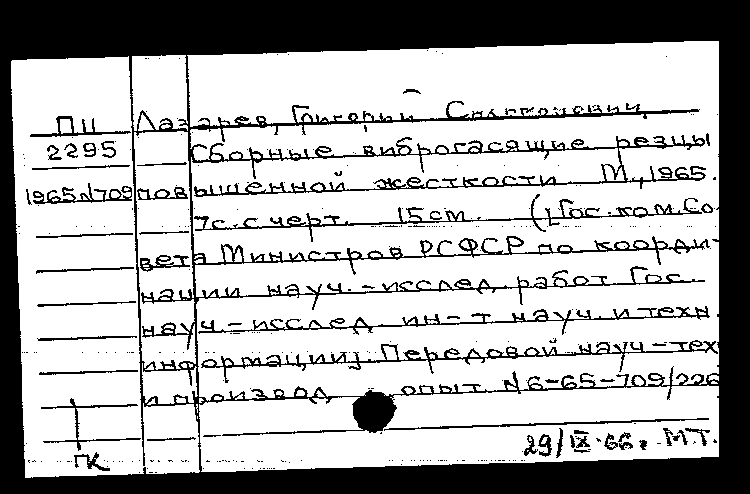 ПII Лазарев, Григорий
2295 Сборные виброгасящие резцы
1965 N 709 повышенной жесткости М., 1965.
7с. с черт. 15 см. (Гос. ком. Со-
вета Министров РСФСР по коорди-
нации науч.-исслед. работ Гос.
науч-исслед. ин-т науч. и техн.
информации). Передовой науч-тех
и производ. опыт. N 6-65-709/226
29/IX-66. М.Т.
ГК